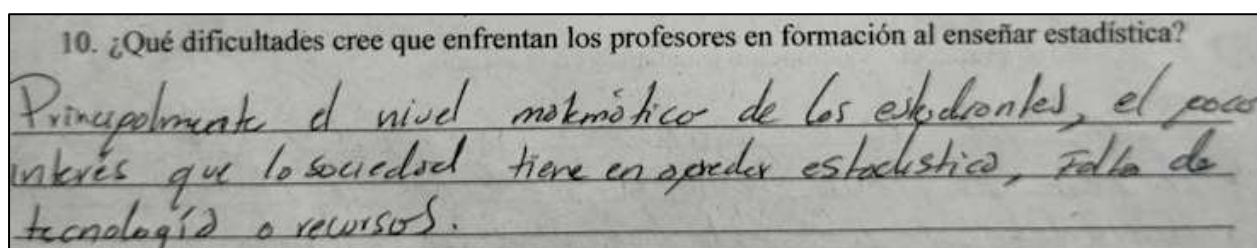 10. ¿Qué dificultades cree que enfrentan los profesores en formación al enseñar estadística?
Principalmente el nivel matemático de los estudiantes, el poco
interés que la sociedad tiene en apreder estadística, Falta de
tecnología o recursos.